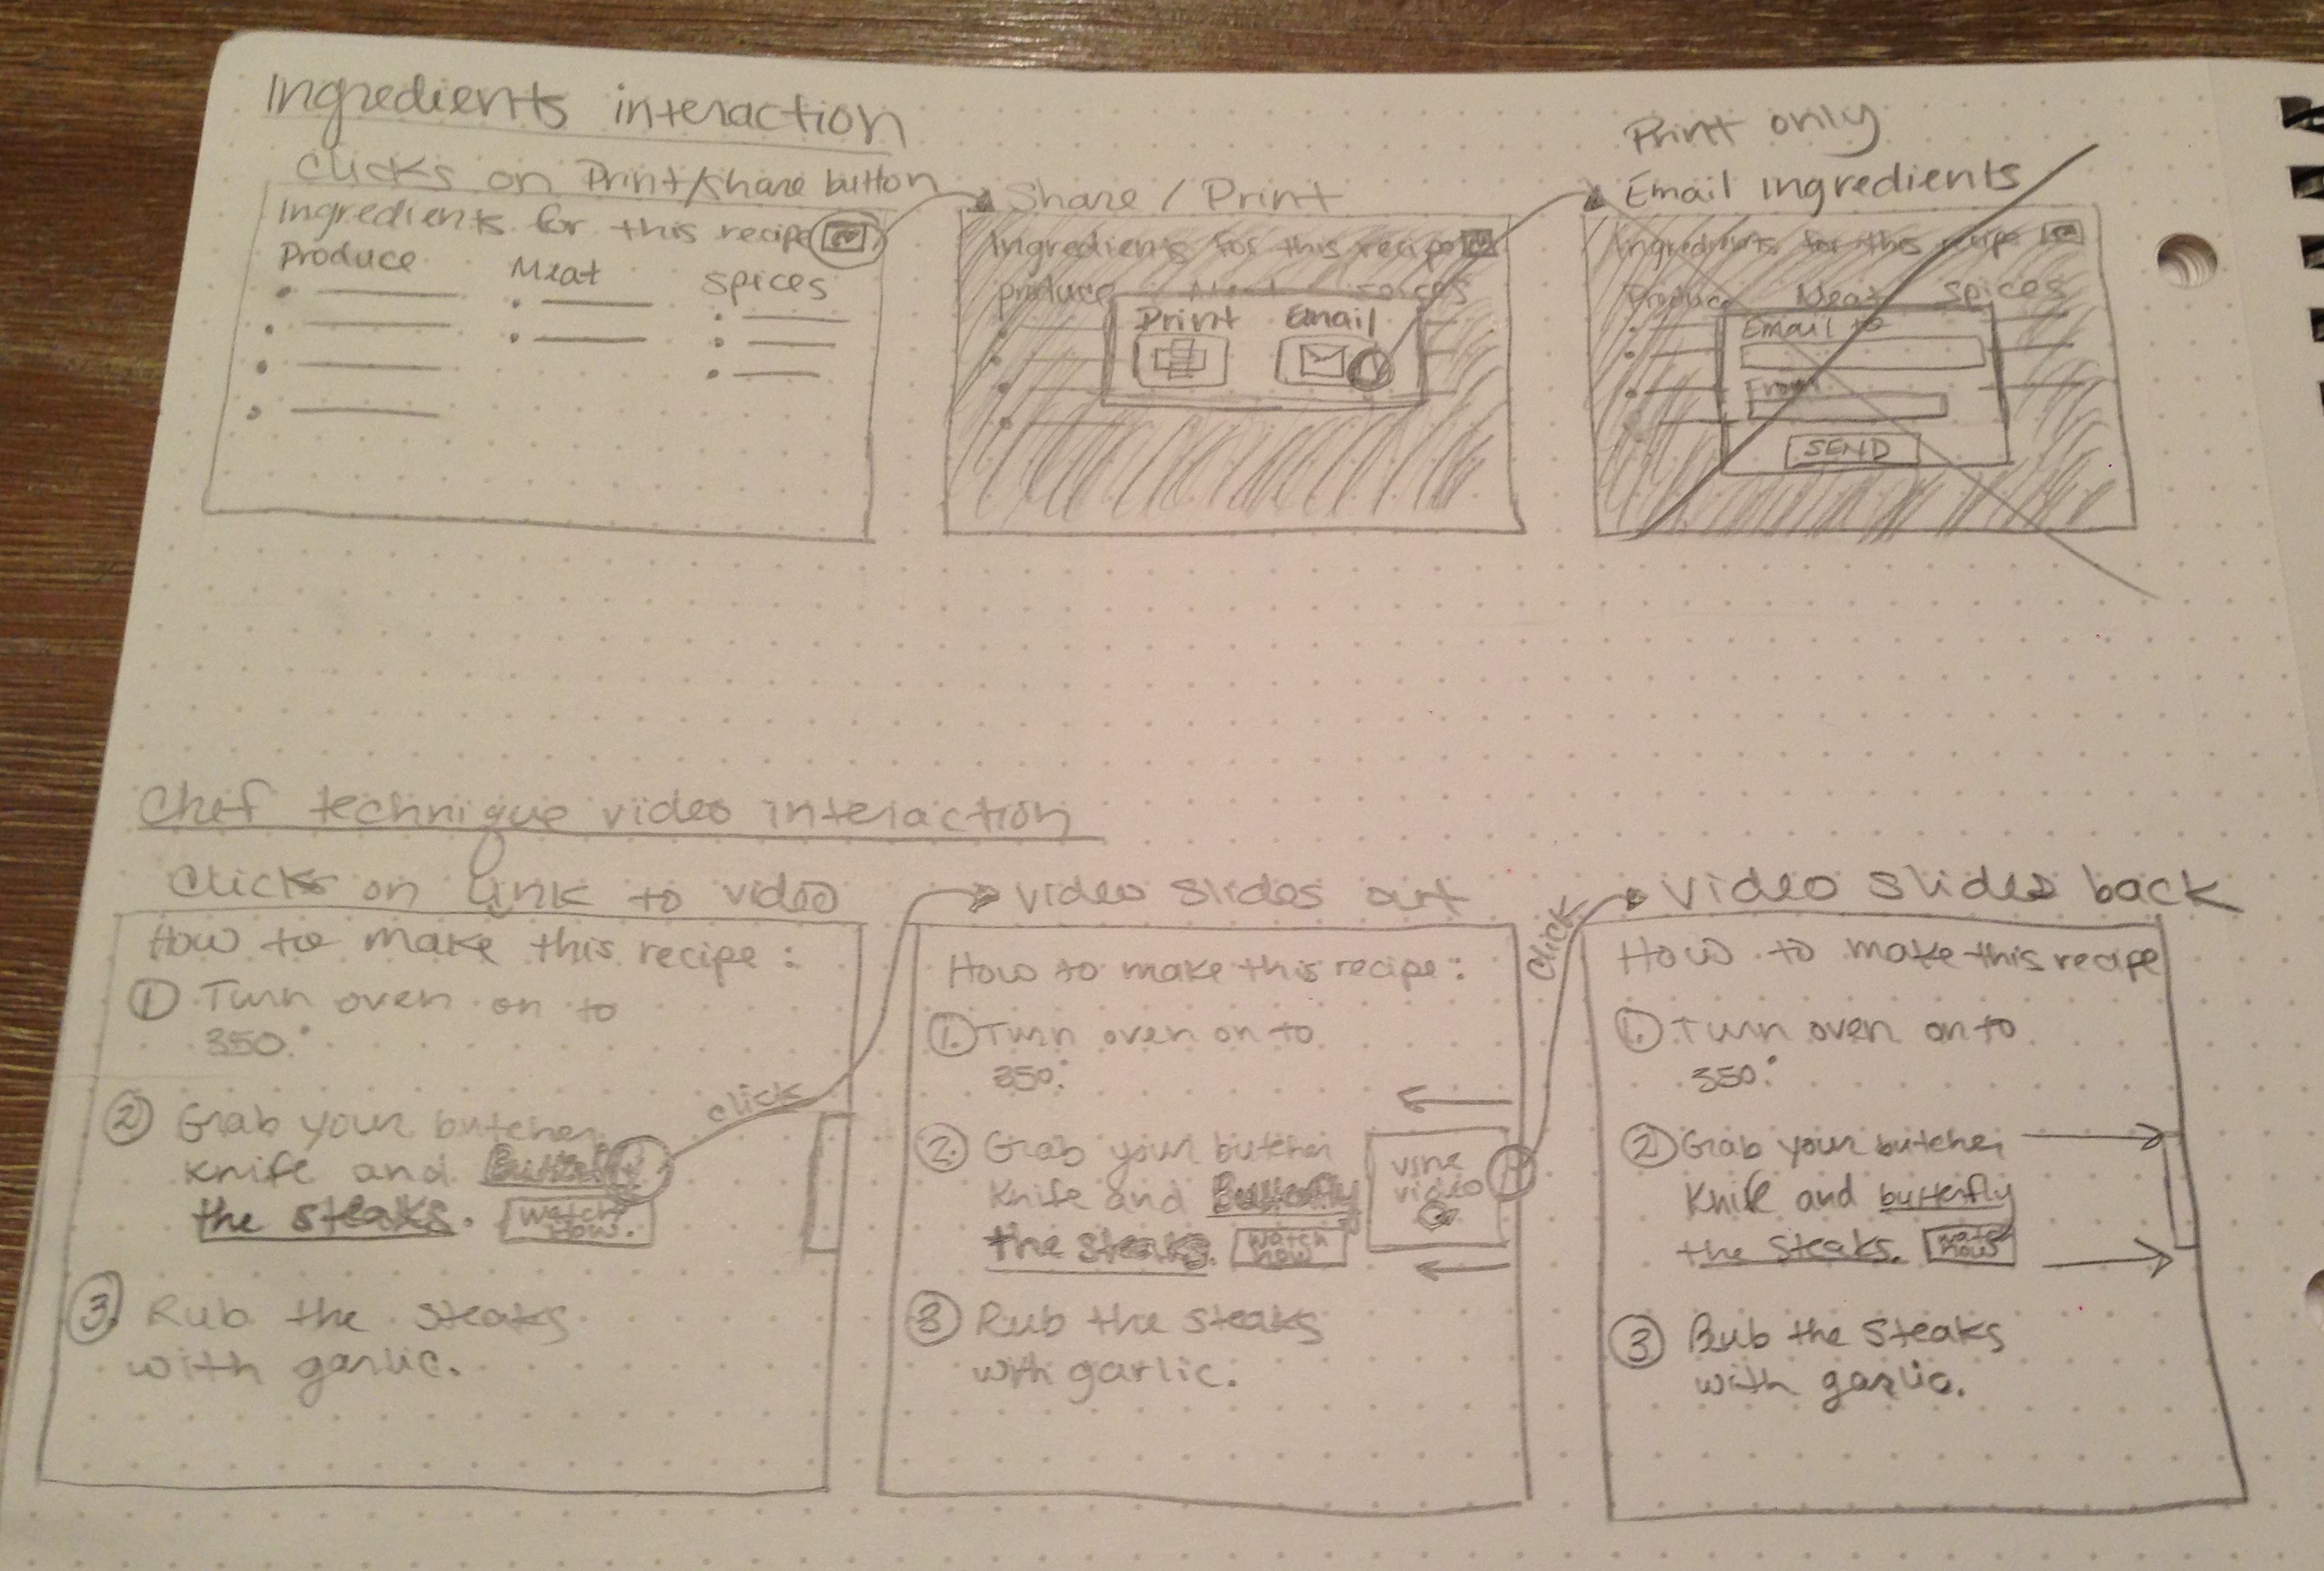 Ingredients interaction
Clicks on Print/share button
Ingredients for this recipe
Produce Meat Spices
Share / Print
Ingredients for this recipe
Produce Meat Spices
Print Email
Print only
Email ingredients
Ingredients for this recipe
Produce Meat Spices
Email to
From
SEND
Chef technique video interaction
Clicks on link to video
How to make this recipe:
1 Turn oven on to
350°
2 Grab your butcher
knife and Butterfly
the steaks. Watch
Now.
3. Rub the steaks
with garlic.
click
Video slides out
How to make this recipe:
1. Turn oven on to
350°
2. Grab your butcher
knife and Butterfly
the steaks. Watch
now
vine
video
3 Rub the steaks
with garlic.
click
Video slides back
How to make this recipe
1. Turn oven on to
350°
2 Grab your butcher
knife and butterfly
the steaks. watch
now
3 Rub the steaks
with garlic.